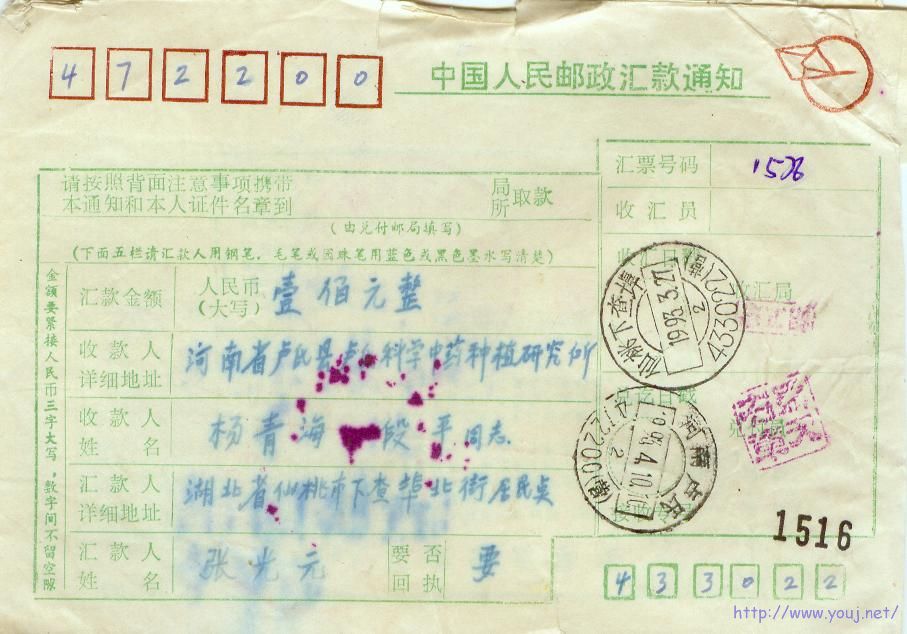 472200
中国人民邮政汇款通知
请按照背面注意事项携带
本通知和本人证件名章到
局
所
取款
(由兑付邮局填写)
(下面五栏请汇款人用钢笔,毛笔或圆珠笔用蓝色或黑色墨水写清楚)
金额要紧接人民币三字大写,数字间不留空隙
汇款金额
人民币
(大写)
壹佰元整
收款人
详细地址
河南省卢氏县 科学中药种植研究所
收款人
姓名
杨青海 段平同志.
汇款人
详细地址
湖北省仙桃市下查埠北街居民
汇款人
姓名
张光元
要否
回执
要
汇票号码
1526
收汇员
收汇日戳
收汇局
仙桃下查埠
1993.3.27
2
433022(营)
472200
4.10
2
1516
433022
http://www.youj.net/